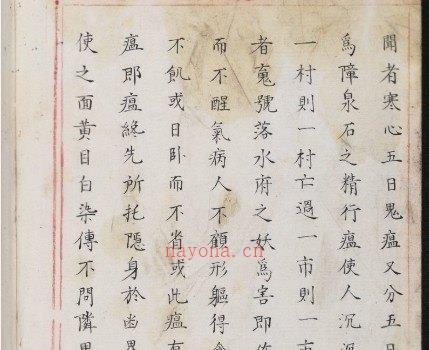 聞者寒心五曰鬼瘟又分五曰
為障泉石之精行瘟使人沉
一村則一村亡過一市則一市
者寃號落水府之妖為害即
而不醒氣病人不顧形軀得
不飢或日臥而不省或此瘟有
瘟即瘟終先所托隱身於幽
使之面黃目白染傳不問隣里
nayona.cn